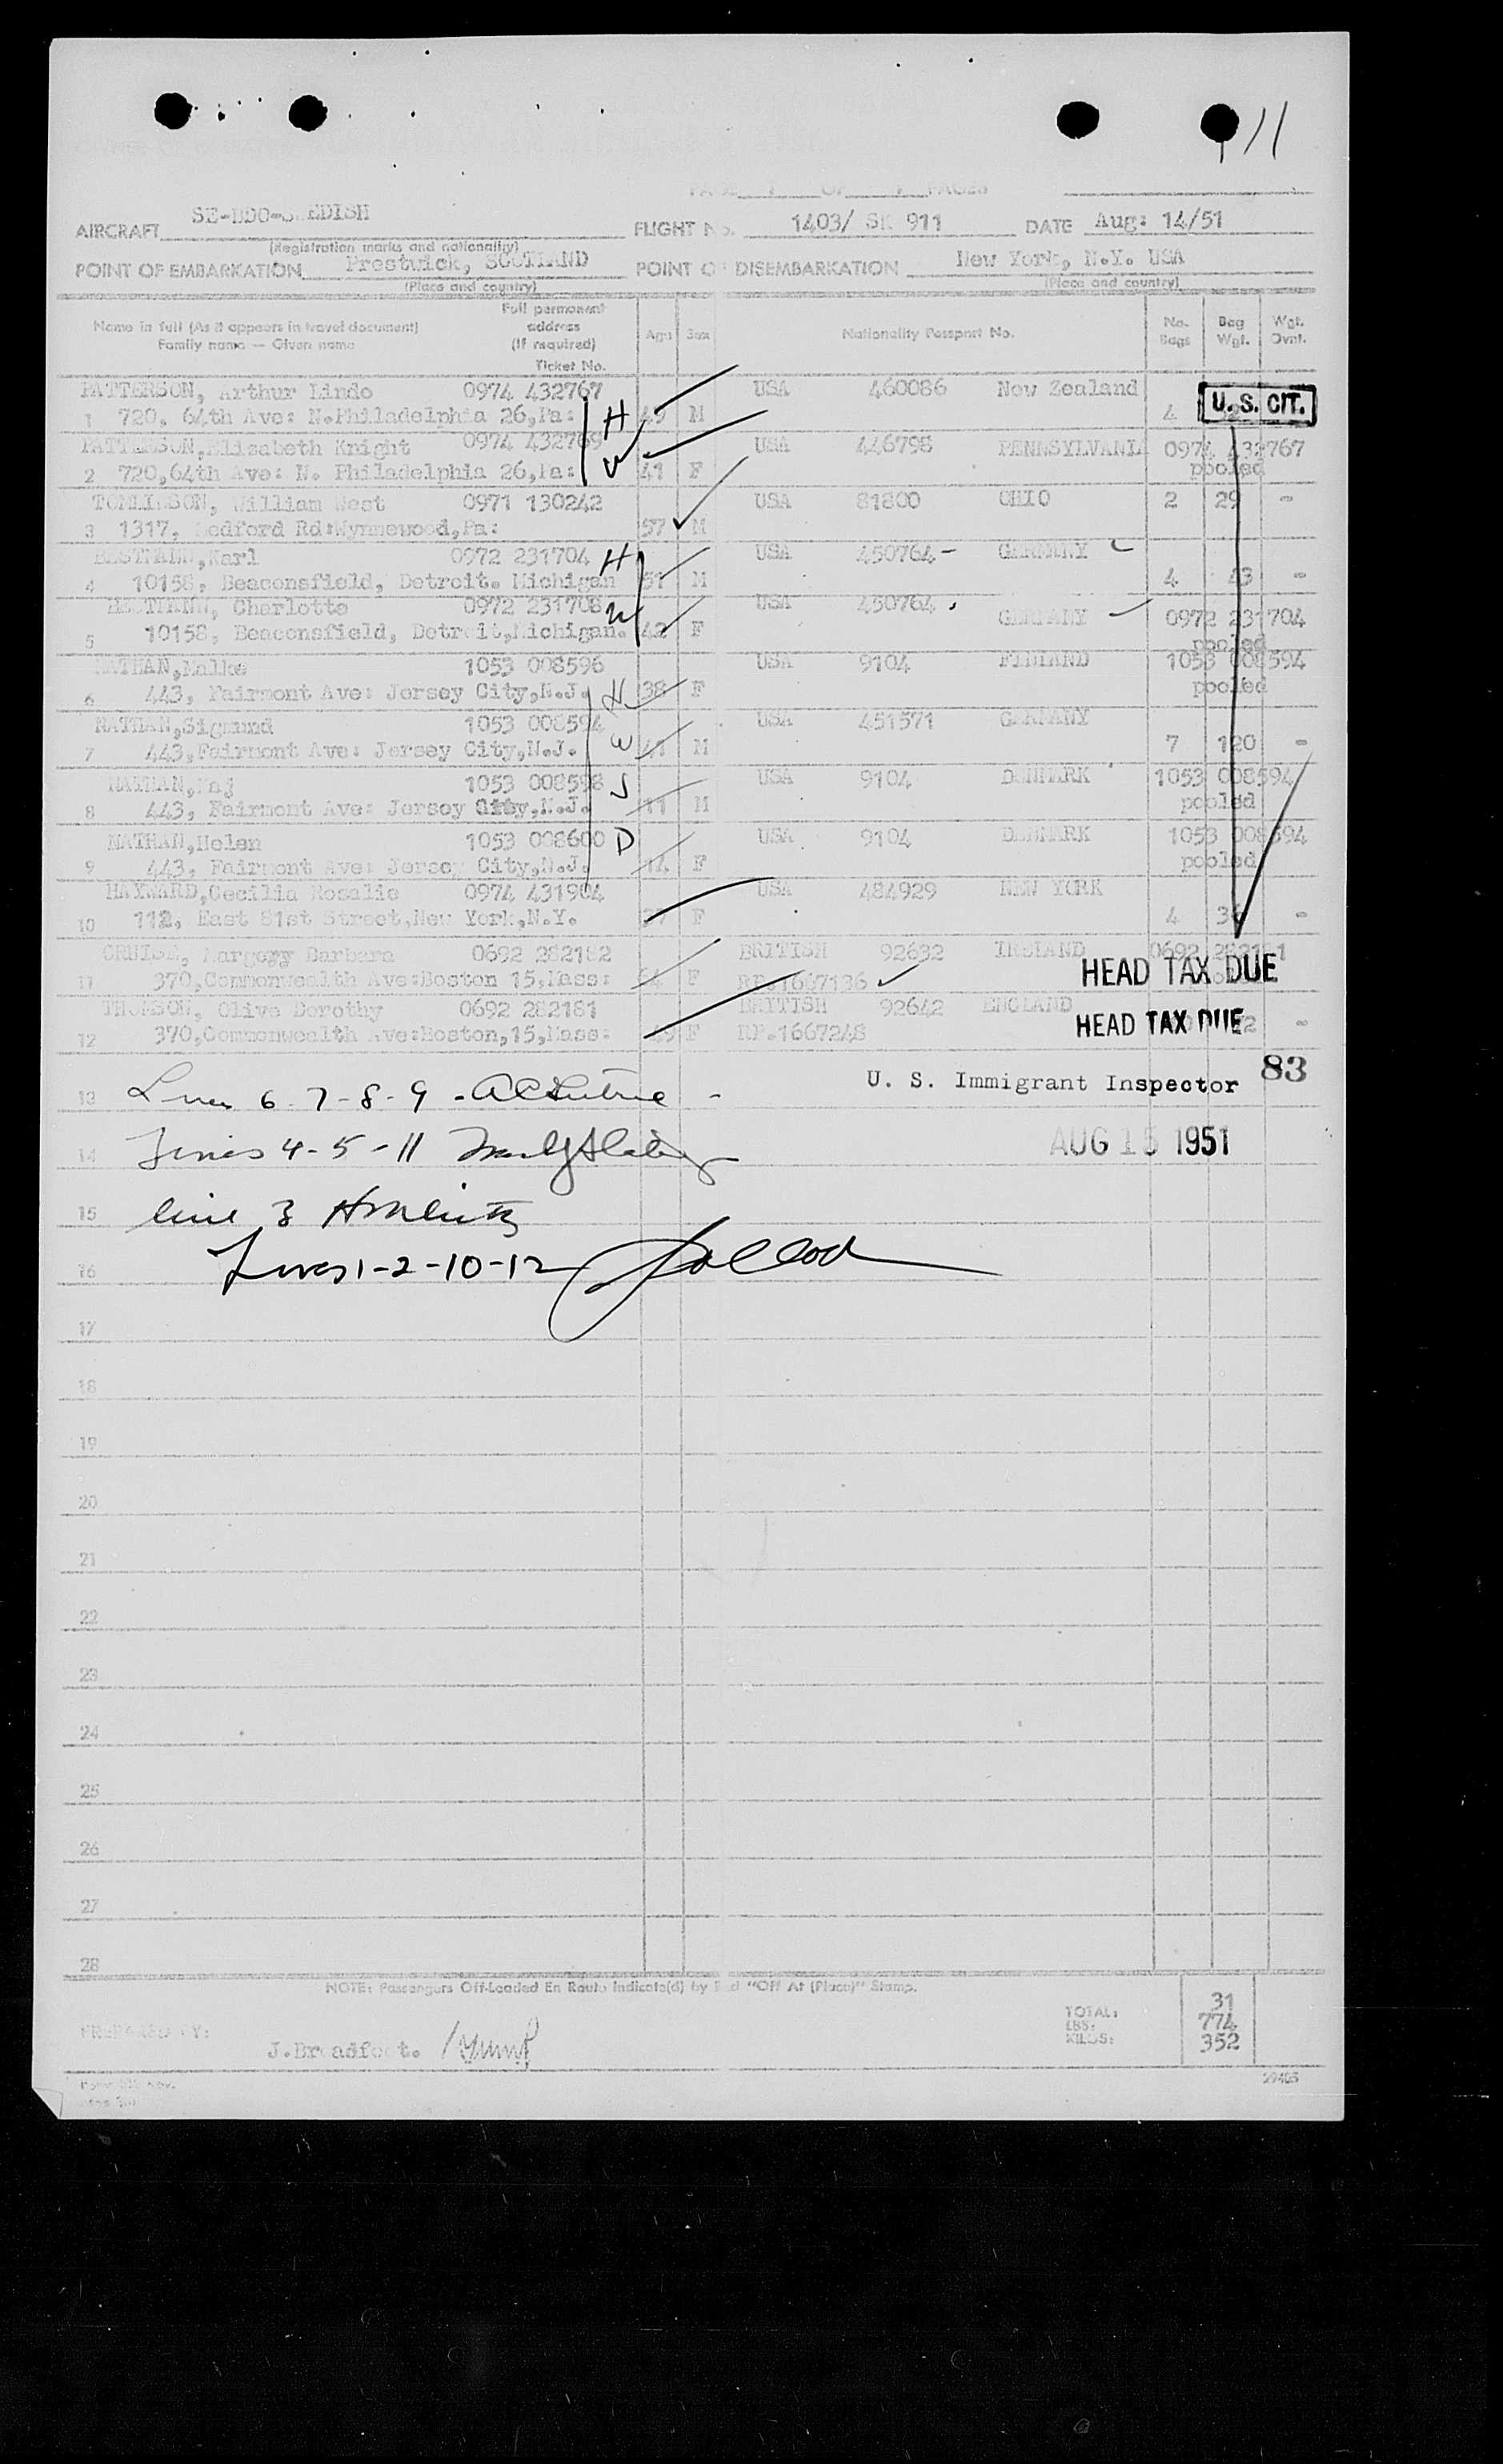 11
PAGE 1 OF 1 PAGES
AIRCRAFT SE-BDO-S EDISH FLIGHT No. 1403/ SK 911 DATE Aug: 14/51
(Registration marks and nationality)
POINT OF EMBARKATION Prestwick, SCOTLAND POINT OF DISEMBARKATION New York, N.Y. USA
(Place and country) (Place and country)
Name in full (As it appears in travel document) Family name — Given name Full permanent address (If required) Ticket No. Age Sex Nationality Passport No. No. Bags Bag Wgt. Wgt. Ovnt.
PATTERSON, Arthur Lindo 0974 432767 USA 460086 New Zealand
1 720, 64th Ave: N.Philadelphia 26,Pa: H 49 M 4 U.S. CIT.
PATTERSON,Elizabeth Knight 0974 432769 USA 446798 PENNSYLVANIA 0974 432767
2 720,64th Ave: N. Philadelphia 26,Pa: W 41 F pooled
TOMLINSON, William West 0971 130242 USA 81800 OHIO 2 29 -
3 1317, Bedford Rd:Wynnewood,Pa: 57 M
Karl 0972 231704 H USA 450764 GERMANY
4 10158, Beaconsfield, Detroit. Michigan 51 M 4 43 -
Charlotte 0972 231706 W USA 450764 GERMANY 0972 231704
5 10158, Beaconsfield, Detroit,Michigan. 42 F pooled
NATHAN,Malke 1053 008596 USA 9104 FINLAND 1053 008594
6 443, Fairmont Ave: Jersey City,N.J. H 38 F pooled
NATHAN,Sigmund 1053 008594 USA 451571 GERMANY
7 443,Fairmont Ave: Jersey City,N.J. W 41 M 7 120 -
NATHAN,Kaj 1053 008598 S USA 9104 DENMARK 1053 008594
8 443, Fairmont Ave: Jersey City,N.J. 11 M pooled
NATHAN,Helen 1053 008600 D USA 9104 DENMARK 1053 008594
9 443, Fairmont Ave: Jersey City,N.J. 14 F pooled
HAYWARD,Cecilia Rosalie 0974 431904 USA 484929 NEW YORK
10 112, East 81st Street,New York,N.Y. F 4 36 -
CRUISE, Margory Barbara 0692 282182 BRITISH 92632 IRELAND 0692 282181
11 370,Commonwealth Ave:Boston 15,Mass: 64 F RP.1667136 HEAD TAX DUE
THOMSON, Olive Dorothy 0692 282181 BRITISH 92642 ENGLAND
12 370,Commonwealth Ave:Boston,15,Mass: 49 F RP.1667248 HEAD TAX DUE -
U. S. Immigrant Inspector 83
13 Lines 6-7-8-9 -
AUG 15 1951
14 Lines 4-5-11
15 line 3
16 Lines 1-2-10-12
17
18
19
20
21
22
23
24
25
26
27
28
NOTE: Passengers Off-Loaded En Route Indicate(d) by Red "Off At (Place)" Stamp.
TOTAL: 31
LBS: 774
KILOS: 352
PREPARED BY: J.Broadfoot.
29405